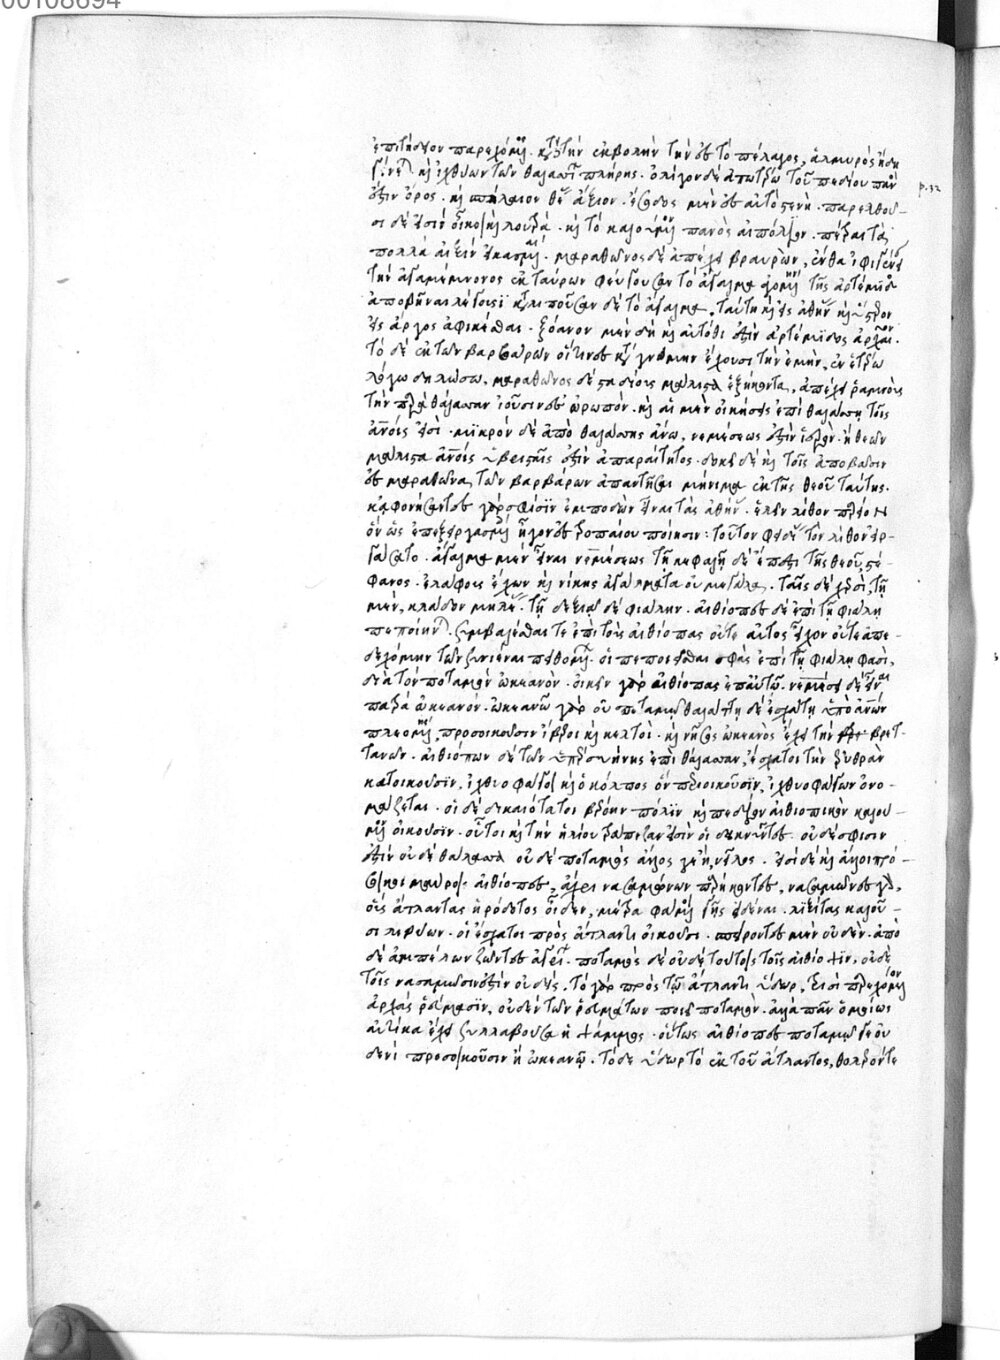 ἐπιτήδειον παρεχόμενος. κατὰ τὴν ἐκβολὴν τὴν ἐς τὸ πέλαγος, ἁλμυρὸς ἤδη
γίνεται καὶ ἰχθύων τῶν θαλασσίων πλήρης. ὀλίγον δὲ ἀπωτέρω τοῦ πεδίου πανός p. 32
ἐστιν ὄρος. καὶ σπήλαιον θέας ἄξιον. ἔσοδος μὲν ἐς αὐτὸ στενὴ. παρελθοῦ-
σι δέ εἰσιν οἶκοι καὶ λουτρά. καὶ τὸ καλούμενον πανὸς αἰπόλιον. πέτραι τὰ
πολλὰ αἰξὶν εἰκασμέναι. μαραθῶνος δὲ ἀπέχει βραυρὼν, ἔνθα ἰφιγένειαν
τὴν ἀγαμέμνονος ἐκ ταύρων φεύγουσαν τὸ ἄγαλμα ἀγομένην τῆς ἀρτέμιδος
ἀποβῆναι λέγουσι καταλιποῦσαν δὲ τὸ ἄγαλμα, ταύτη καὶ ἐς ἀθήνας καὶ ὕστερον
ἐς ἄργος ἀφικέσθαι. ξόανον μὲν δὴ καὶ αὐτόθι ἐστὶν ἀρτέμιδος ἀρχαῖον.
τὸ δὲ ἐκ τῶν βαρβάρων οἵτινες κατὰ γνώμην ἔχουσι τὴν ἐμὴν, ἐν ἑτέρω
λόγω δηλώσω. μαραθῶνος δὲ σταδίους μάλιστα ἑξήκοντα, ἀπέχει ῥαμνοῦς
τὴν παρὰ θάλασσαν ἰοῦσιν ἐς ὠρωπόν. καὶ αἱ μὲν οἰκήσεις ἐπὶ θαλάσση τοῖς
ἀνθρώποις εἰσὶ. μικρὸν δὲ ἀπὸ θαλάσσης ἄνω, νεμέσεως ἐστὶν ἱερὸν. ἣ θεῶν
μάλιστα ἀνθρώποις ὑβρισταῖς ἐστὶν ἀπαραίτητος. δοκεῖ δὲ καὶ τοῖς ἀποβᾶσιν
ἐς μαραθῶνα, τῶν βαρβάρων ἀπαντῆσαι μήνιμα ἐκ τῆς θεοῦ ταύτης.
καταφρονήσαντες γάρ σφισιν ἐμποδὼν εἶναι τὰς ἀθήνας ἑλεῖν λίθον πάριον
ὃν ὡς ἐπ' ἐξειργασμένοις ἦγον ἐς τροπαίου ποίησιν: τοῦτον φειδίας τὸν λίθον εἰρ-
γάσατο. ἄγαλμα μὲν εἶναι νεμέσεως τῇ κεφαλῇ δὲ ἔπεστι τῆς θεοῦ, στέ-
φανος. ἐλάφους ἔχων καὶ νίκης ἀγάλματα οὐ μεγάλα. ταῖς δὲ χερσὶ, τῇ
μὲν, κλάδον μηλέας. τῇ δεξιᾷ δὲ φιάλην. αἰθίοπες δὲ ἐπὶ τῇ φιάλη
πεποίηνται. συμβαλέσθαι τε ἐπὶ τοὺς αἰθίοπας οὔτε αὐτὸς εἶχον οὔτε ἀπε-
δεχόμην τῶν συνιέναι πειθομένων. οἳ πεποιῆσθαι σφᾶς ἐπὶ τῇ φιάλη φασὶ,
διὰ τὸν ποταμὸν ὠκεανὸν. οἰκεῖν γὰρ αἰθίοπας ἐπ' αὐτῷ. νεμέσει δὲ εἶναι
πατέρα ὠκεανόν. ὠκεανῶ γὰρ οὐ ποταμῶ θαλάττη δὲ ἐσχάτη ὑπὸ ἀνθρώπων
πλεομένης προσοικοῦσιν ἴβηρες καὶ κελτοί. καὶ νῆσος ὠκεανὸς ἔχει τὴν βρετ-
τανῶν. αἰθιόπων δὲ τῶν ὑπὲρ συήνης ἐπὶ θάλασσαν, ἔσχατοι τὴν ἐρυθρὰν
κατοικοῦσιν, ἰχθυοφάγοι καὶ ὁ κόλπος ὃν περιοικοῦσιν, ἰχθυοφάγων ὀνο-
μάζεται. οἱ δὲ δικαιότατοι μερόην πόλιν καὶ πεδίον αἰθιοπικὸν καλού-
μενον οἰκοῦσιν. οὗτοι καὶ τὴν ἡλίου τράπεζαν εἰσὶν οἱ δεικνύντες. οὐδέ σφισιν
ἐστὶν οὐδὲ θάλασσα οὐδὲ ποταμὸς ἄλλος γε ἢ νεῖλος. εἰσὶ δὲ καὶ ἄλλοι πρό-
σοικοι μαύροις αἰθίοπες, ἄχρι νασαμώνων παρήκοντες, νασαμῶνες γὰρ,
οὓς ἄτλαντας ἡρόδοτος οἶδεν, μέτρα φάμενοι γῆς εἰδέναι. λιξίτας καλοῦ-
σι λιβύων. οἱ ἔσχατοι πρὸς ἄτλαντι οἰκοῦσι. σπείροντες μὲν οὐδὲν. ἀπὸ
δὲ ἀμπέλων ζῶντες ἀγρίων. ποταμὸς δὲ οὐδὲ τούτοις τοῖς αἰθίοψιν, οὐδὲ
τοῖς νασαμῶσιν ἐστὶν οὐδείς. τὸ γὰρ πρὸς τῷ ἄτλαντι ὕδωρ, τρισὶ παρεχόμενον
ἀρχὰς ῥεύμασιν, οὐδὲν τῶν ῥευμάτων ποιεῖ ποταμόν. ἀλλὰ πᾶν ὁμοίως
αὐτίκα ἔχει συλλαβοῦσα ἡ ψάμμος. οὕτως αἰθίοπες ποταμῶ γε οὐ
δενὶ προσοικοῦσιν ἢ ὠκεανῷ. τό δε ὕδωρ τὸ ἐκ τοῦ ἄτλαντος, θολερόν τε